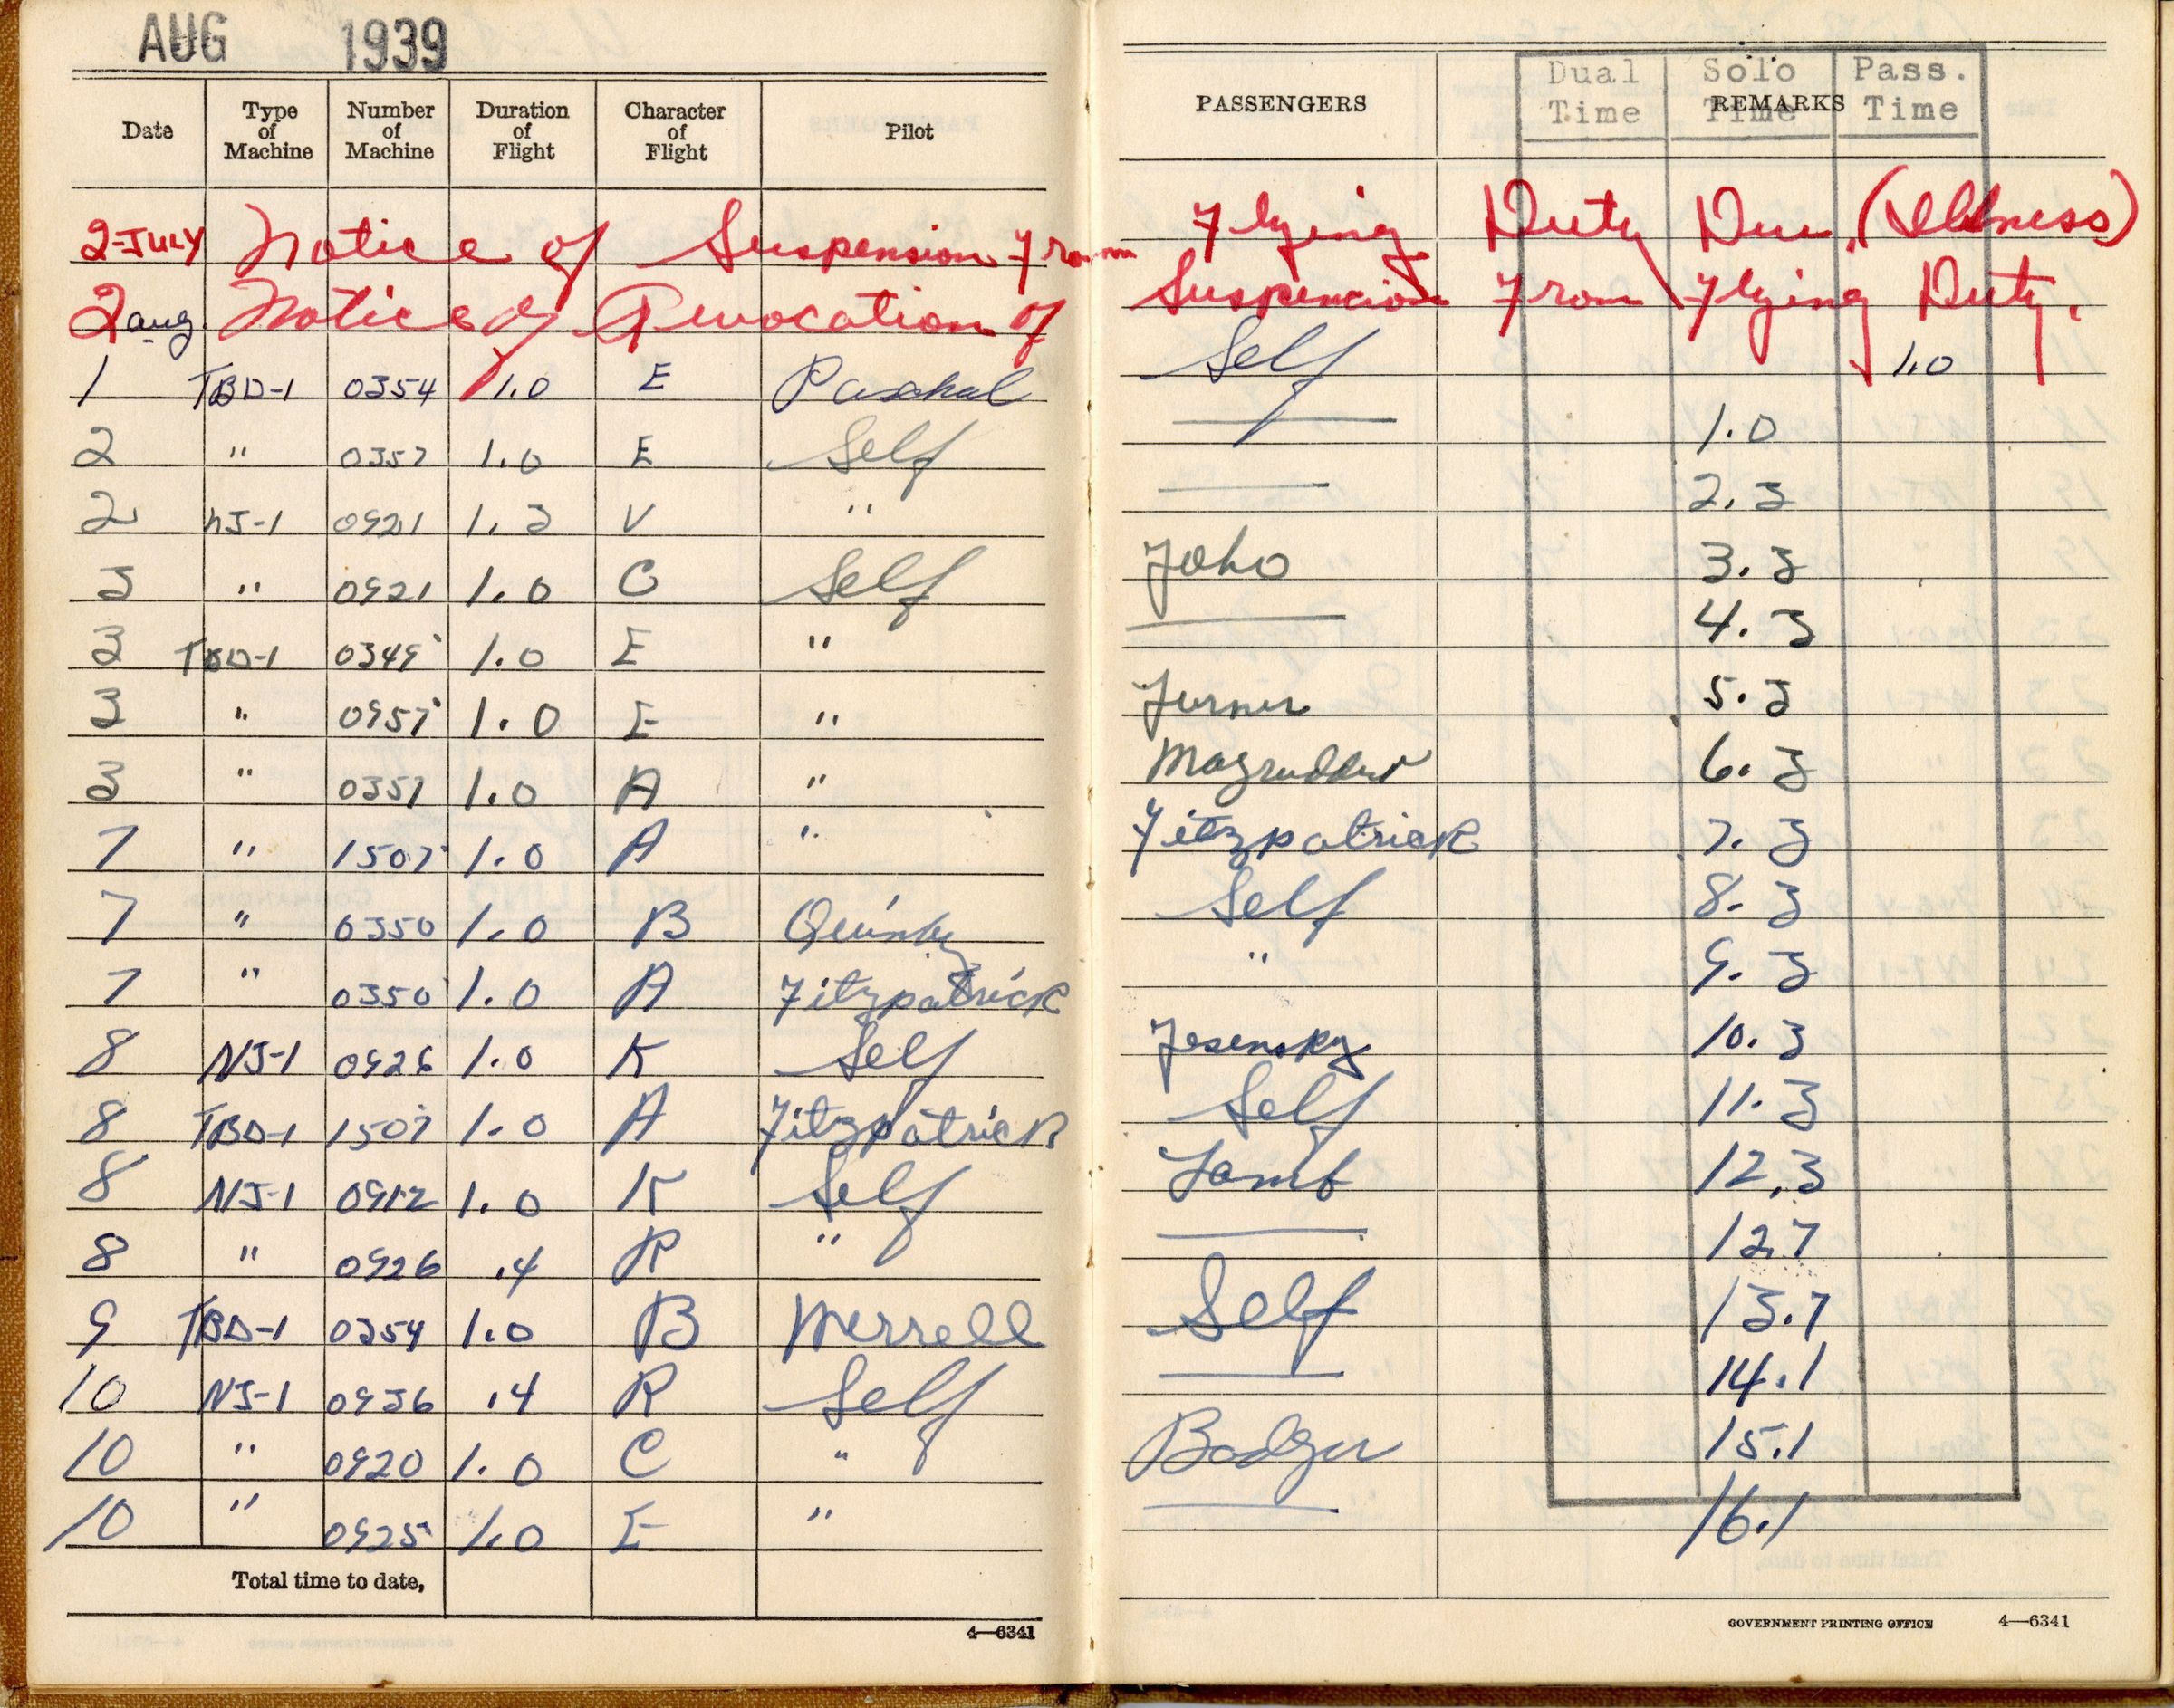 AUG 1939
Date Type of Machine Number of Machine Duration of Flight Character of Flight Pilot PASSENGERS REMARKS Dual Time Solo Time Pass. Time
2-JULY Notice of Suspension From Flying Duty Due (Illness)
2 aug. Notice of Revocation of Suspension From Flying Duty.
1 TBD-1 0354 1.0 E Paschal Self 1.0
2 " 0357 1.0 E Self — 1.0
2 NJ-1 0921 1.3 V " — 2.3
3 " 0921 1.0 C Self Joho 3.3
3 TBD-1 0349 1.0 E " — 4.3
3 " 0357 1.0 E " Turner 5.3
3 " 0357 1.0 A " Magrudder 6.3
7 " 1507 1.0 A " Fitzpatrick 7.3
7 " 0350 1.0 B Quinby Self 8.3
7 " 0350 1.0 A Fitzpatrick " 9.3
8 NJ-1 0926 1.0 K Self Jesensky 10.3
8 TBD-1 1507 1.0 A Fitzpatrick Self 11.3
8 NJ-1 0912 1.0 K Self Lamb 12.3
8 " 0926 .4 R " — 12.7
9 TBD-1 0354 1.0 B Merrell Self 13.7
10 NJ-1 0936 .4 R Self — 14.1
10 " 0920 1.0 C " Badger 15.1
10 " 0925 1.0 E " — 16.1
Total time to date,
4—6341 GOVERNMENT PRINTING OFFICE 4—6341